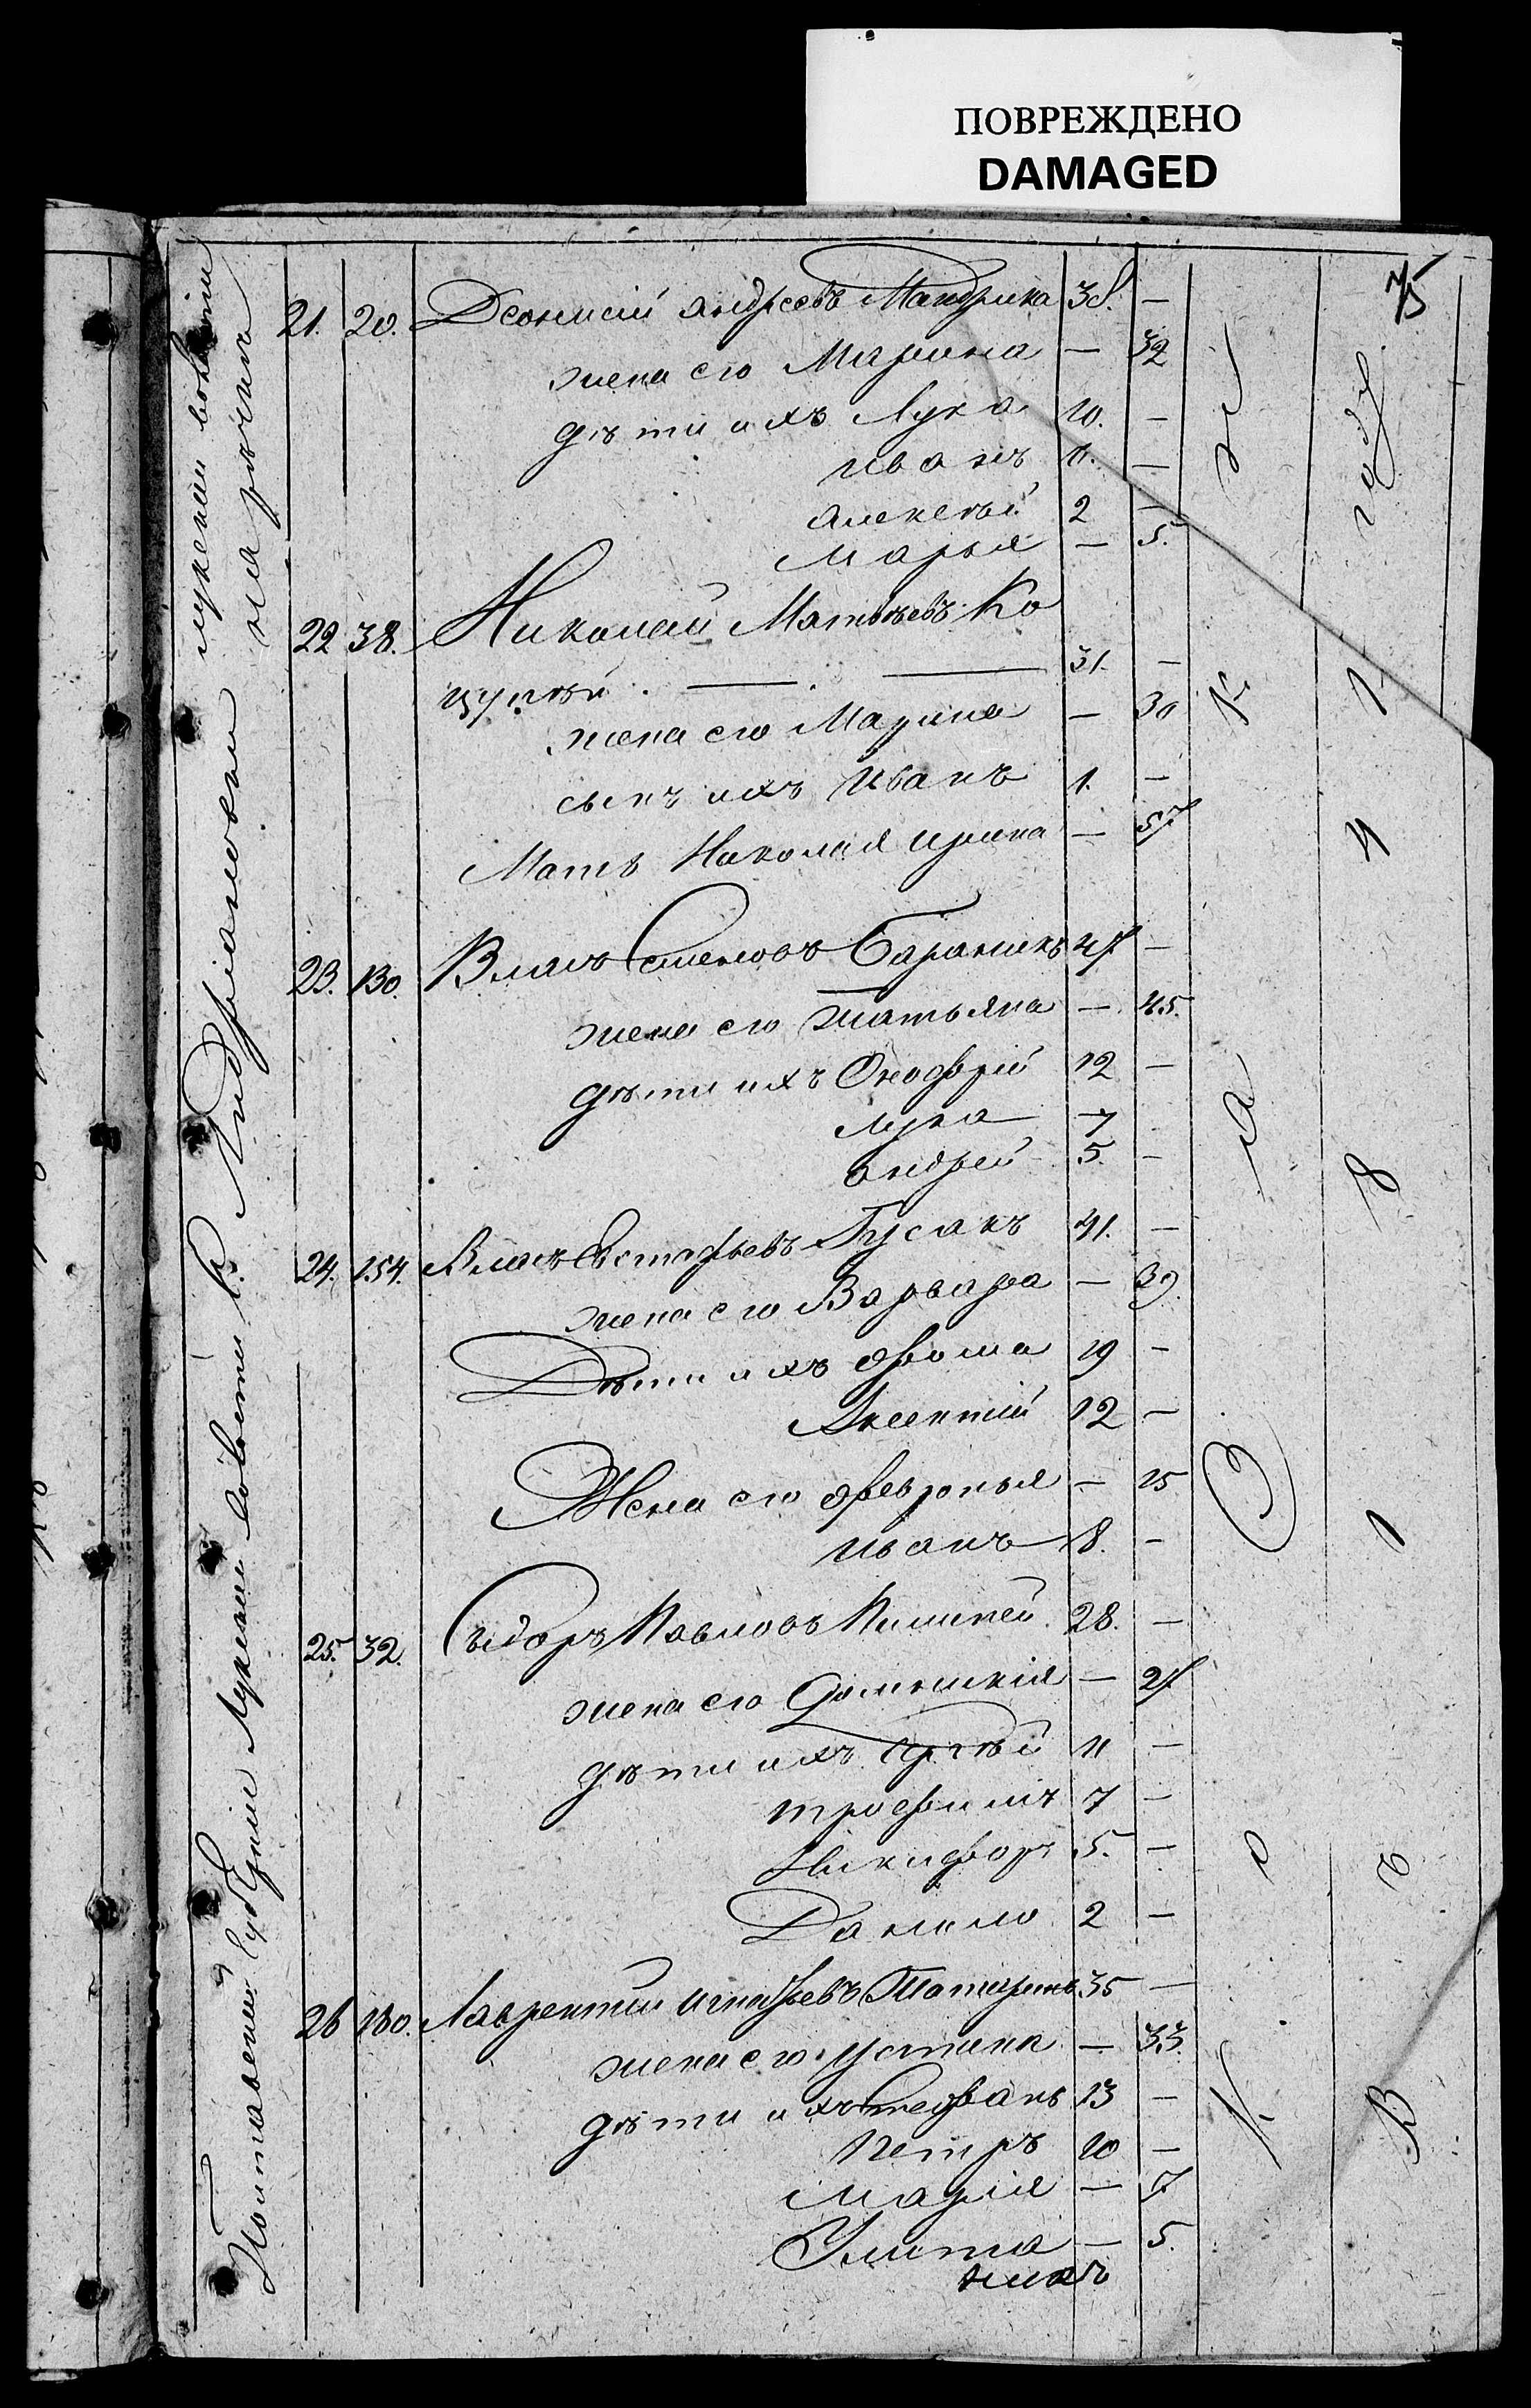 ПОВРЕЖДЕНО
DAMAGED
75
21. 20. Деонисій Андреевъ Мандрика 38. —
жена его Марина — 32
дѣти ихъ Лука 10. —
Иванъ 11. —
Алексѣй 2 —
Марья — 5.
22 38. Николай Матвѣевъ Ко
31. —
жена его Марина — 30
сынъ ихъ Иванъ 1. —
Мать Николая Ирина — 57
23. 130. Власъ Семеновъ Бараникъ 47 —
жена его Татьяна — 45.
дѣти ихъ Онофрій 12 —
Лука 7 -
Андрей 5. —
24. 154. Власъ Евстафьевъ Гусакъ 41. —
жена его Варвара — 39.
Дѣти ихъ Фома 19 —
Аксентій 12 —
Жена его Февронья — 25
Иванъ 8. —
25. 32. Сидоръ Павловъ 28. —
жена его Домникія — 27
дѣти ихъ Сергѣй 11 —
Трофимъ 7 —
Никифоръ 5. —
Данило 2 —
26 180. Лаврентій Игнатьевъ Татаринъ 35 —
жена его Устина — 33.
дѣти ихъ Стефанъ 13 —
Петръ 10 —
Марія — 7
Улита — 5.
Полтавской Губерніи
году
1 4 8 1
В